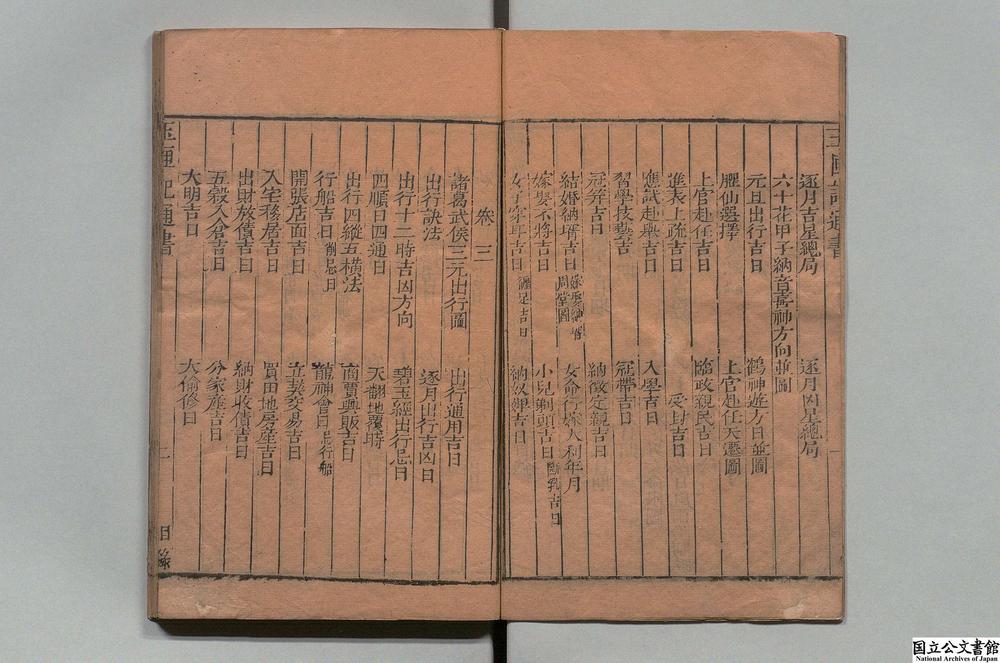 逐月吉星總局 逐月凶星總局
六十花甲子納音喜神方向並圖
元旦出行吉日 鶴神遊方日並圖
臞仙選擇 上官赴任天遷圖
上官赴任吉日 臨政親民吉日
進表上疏吉日 受封吉日
應試赴舉吉日 入學吉日
習學技藝吉日 冠帶吉日
冠笄吉日 納徵定親吉日
結婚納壻吉日 嫁娶納壻周堂圖 女命行嫁大利年月
嫁娶不將吉日 小兒剃頭吉日 斷乳吉日
女子穿耳吉日 纏足吉日 納奴婢吉日
卷三
諸葛武侯三元出行圖 出行通用吉日
出行訣法 逐月出行吉凶日
出行十二時吉凶方向 碧玉經出行忌日
四順日四通日 天翻地覆時
出行四縱五橫法 商賈興販吉日
行船吉日 附忌日 龍神會日 忌行船
開張店面吉日 立契交易吉日
入宅移居吉日 買田地房產吉日
出財放債吉日 納財收債吉日
五穀入倉吉日 分家產吉日
大明吉日 大偷修日
通書
二
目錄
国立公文書館
National Archives of Japan